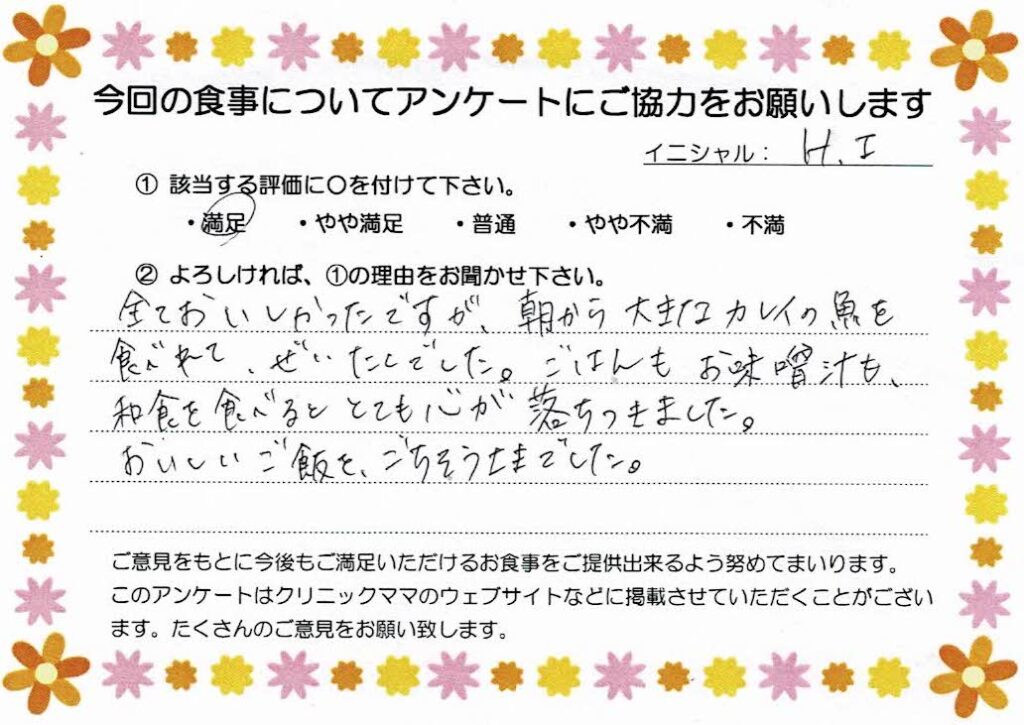 今回の食事についてアンケートにご協力をお願いします
イニシャル： H.I
① 該当する評価に〇を付けて下さい。
・満足 ・やや満足 ・普通 ・やや不満 ・不満
② よろしければ、①の理由をお聞かせ下さい。
全ておいしかったですが、朝から大きなカレイの魚を
食べれて、ぜいたくでした。ごはんもお味噌汁も、
和食を食べるととても心が落ちつきました。
おいしいご飯を、ごちそうさまでした。
ご意見をもとに今後もご満足いただけるお食事をご提供出来るよう努めてまいります。
このアンケートはクリニックママのウェブサイトなどに掲載させていただくことがござい
ます。たくさんのご意見をお願い致します。